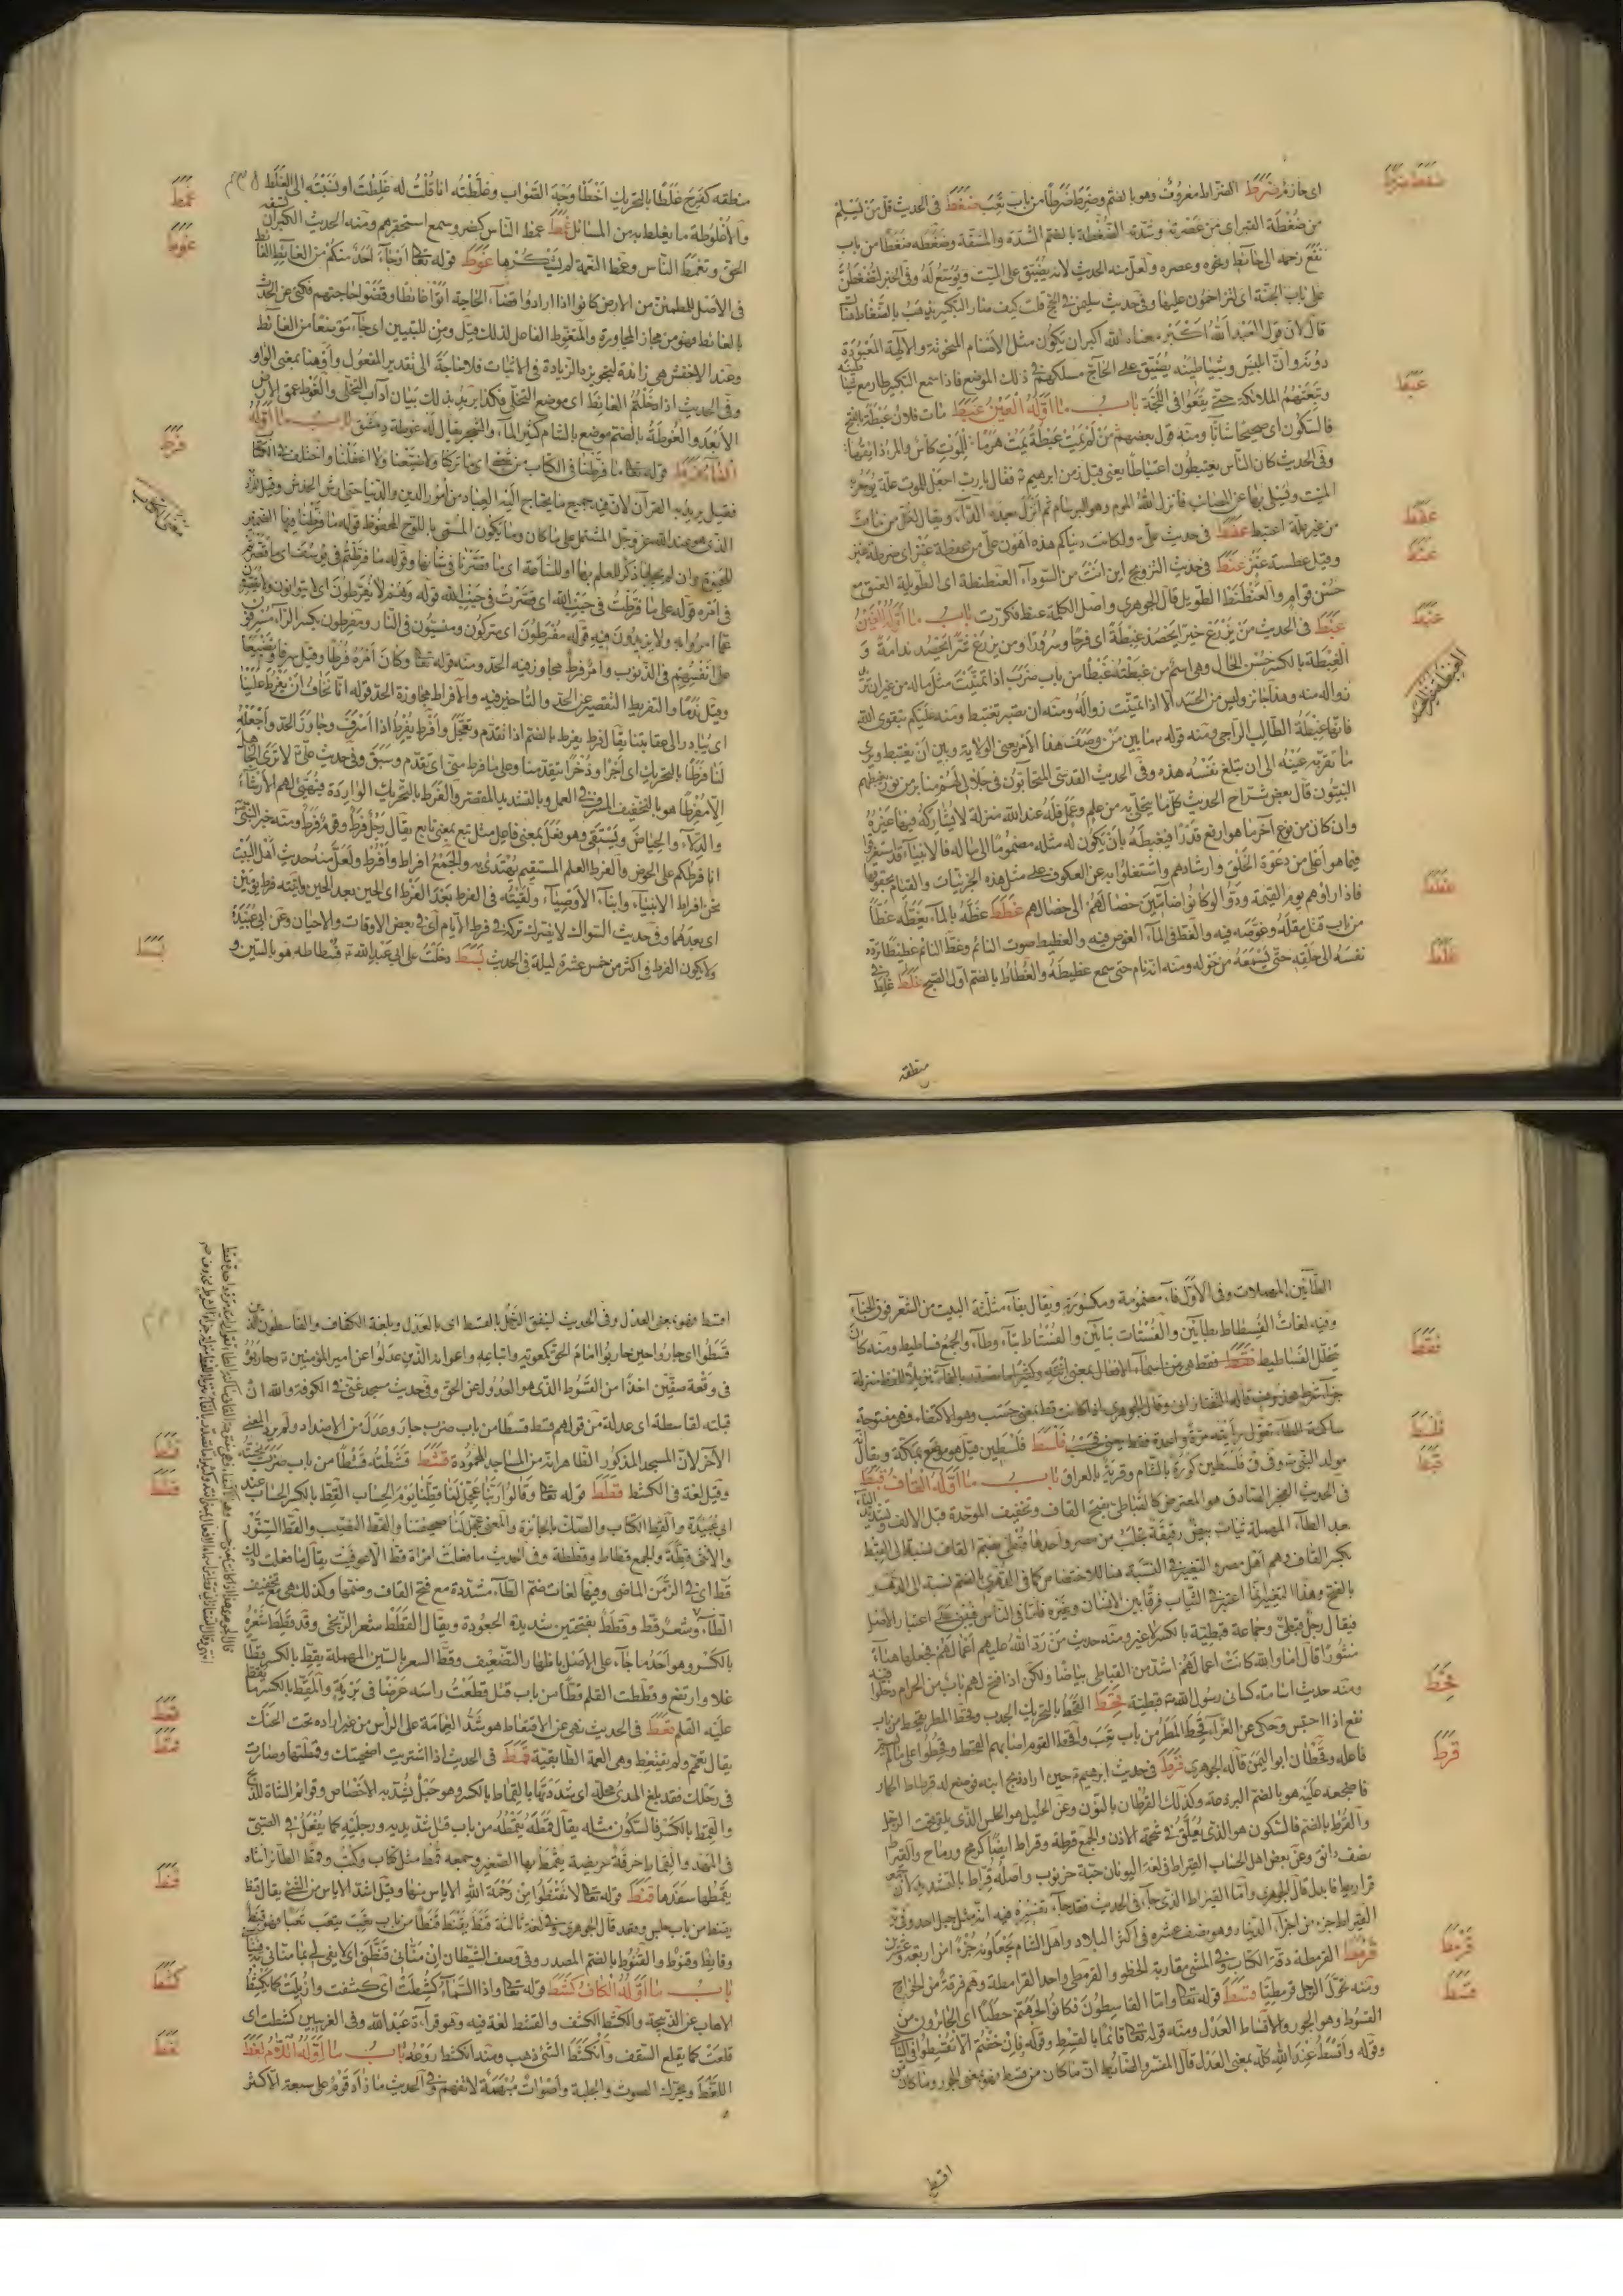 اى حازم ضرط الضراط معروف وهو بالضم وضرط ضرطا من باب تعب ضغط فى الحديث قل من يسلم
من ضغطة القبر اى من عصرته وشدته الضغطة بالضم الشدة والمشقة وضغطه ضغطا من باب
نفع زحمه الى حائط ونحوه وعصره ولعل منه الحديث لانه يضيق على الميت ويوسع له وفى الخبر لتضغطن
على باب الجنة اى تزاحمون عليها وفى حديث
قال لان قول العبد الله اكبر معناه الله اكبر ان يكون مثل الاصنام المنحوتة والالهة المعبودة
دونه وان ابليس وشياطينه يضيق على الحاج مسلكهم فى ذلك الموضع فاذا سمع التكبير طار مع
وتبعتهم الملائكة حتى يقعوا فى اللجة باب ما اوله العين عبط مات فلان عبطة بالفتح
فالسكون اى صحيحا شابا ومنه قول بعضهم من لم يمت عبطة يمت هرما للموت كاس والمرء ذائقها
وفى الحديث كان الناس يعتبطون اعتباطا يعنى قبل زمن ابراهيم فقال يا رب اجعل للموت علة يوجر بها
الميت
من غير علة اعتبط عفط فى حديث على ولكانت دنياكم هذه اهون على من عفطة عنز اى ضرطة عنز
وقيل عطسة عنز عنط فى حديث التزويج اين انت من السوداء العنطنطة اى الطويلة العنق مع
حسن قوام والعنطنط الطويل قال الجوهرى واصل الكلمة عنط فكررت باب ما اوله الغين
غبط فى الحديث من يزرع خيرا يحصد غبطة اى فرحا وسرورا ومن يزرع شرا يحصد ندامة و
الغبطة بالكسر حسن الحال وهى اسم من غبطته غبطا من باب ضرب اذا تمنيت مثل ماله من غير ان تريد
زواله منه وهذا جائز وليس من الحسد الا اذا تمنيت زواله ومنه ان يصير تغتبط ومنه عليكم بتقوى الله
فانها غبطة الطالب الراجى ومنه قوله ما بين من وصف هذا الامر يعنى الولاية وبين ان يغتبط ويرى
ما تقر به عينه الى ان تبلغ نفسه هذه وفى الحديث القدسى المتحابون فى جلالى لهم منابر من نور يغبطهم
النبيون قال بعض شراح الحديث كل ما يتحلى به من علم وعمل فله عند الله منزلة لا يشاركه فيها غيره
وان كان من نوع آخر ما هو ارفع قدرا فيغبطه بان يكون له مثله مضموما الى ماله فالانبياء قد استغرقوا
فيما هو اعلى من دعوة الخلق وارشادهم واشتغلوا به عن العكوف على مثل هذه الجزئيات والقيام بحقوقها
فاذا راوهم يوم القيمة ودوا لو كانوا ضامين خصالهم الى خصالهم غطط غطه بالماء يغطه غطا
من باب قتل مقله وغوصه فيه والغط فى الماء الغوص فيه والغطيط صوت النائم وغط النائم غطيطا تردد
نفسه الى حلقه حتى يسمعه من حوله ومنه انه نام حتى سمع غطيطه والغطاط بالضم اول الصبح غلط غلط فى
منطقه
منطقه كفرح غلطا بالتحريك اخطا وجه الصواب وغلطته انا قلت له غلطت او نسبته الى الغلط
والاغلوطة ما يغلط به من المسائل غمط غمط الناس كضرب وسمع استحقرهم ومنه الحديث الكبر ان
الحق وتغمط الناس وغمط النعمة لم يشكرها غوط قوله تعا او جاء احد منكم من الغائط الغائط
فى الاصل للمطمئن من الارض كانوا اذا ارادوا قضاء الحاجة اتوا غائطا وقضوا حاجتهم فكنى عن الحدث
بالغائط فهو من مجاز المجاورة
وعند الاخفش هى زائدة لتجويزه الزيادة فى الاثبات فلا حاجة الى تقدير المفعول واو هنا بمعنى الواو
وفى الحديث اذا دخلتم الغائط اى موضع التخلى فكذا يريد بذلك بيان آداب التخلى والغوط عمق الارض
الابعد والغوطة بالضم موضع بالشام كثير الماء والشجر يقال له غوطة دمشق باب ما اوله
الفاء فرط قوله تعا ما فرطنا فى الكتاب من شئ اى ما تركنا ولا ضيعنا ولا اغفلنا واختلف فى الكتاب
فقيل يريد به القرآن لان فيه جميع ما يحتاج اليه العباد من امور الدين والدنيا حتى ارش الخدش وقيل
الذى هو عند الله عز وجل المشتمل على ما كان وما يكون المسمى باللوح المحفوظ قوله ما فرطنا فيها الضمير
للحيوة وان لم يجر لها ذكر للعلم بها او للساعة اى ما قصرنا فى شانها وقوله ما فرطتم فى يوسف اى قصرتم
فى امره قوله على ما فرطت فى جنب الله اى قصرت فى جنب الله قوله وهم لا يفرطون اى لا يتوانون
عما امروا به ولا يزيدون فيه قوله مفرطون اى متركون ومنسيون فى النار ومفرطون بكسر الراء مسرفون
على انفسهم فى الذنوب وامر فرط مجاوز فيه الحد ومنه قوله تعا وكان امره فرطا وقيل سرفا وتضييعا
وقيل ندما والتفريط التقصير عن الحد والتاخير فيه والافراط مجاوزة الحد قوله انا نخاف ان يفرط علينا
اى يبادر الى عقابنا يقال فرط يفرط بالضم اذا تقدم وتعجل وافرط يفرط اذا اسرف وجاوز الحد واجعله
لنا فرطا بالتحريك اى اجرا وذخرا يتقدمنا وعلى ما فرط منى اى تقدم وسبق وفى حديث على لا ترى الجاهل
الا مفرطا هو بالتخفيف المسرف فى العمل وبالتشديد المقصر والفرط بالتحريك
والدلاء والحياض ويستقى وهو فعل بمعنى فاعل مثل تبع بمعنى تابع يقال رجل فرط وقوم فرط ومنه خبر النبى
انا فرطكم على الحوض والفرط العلم المستقيم يهتدى به والجمع افراط وافرط ولعل منه حديث اهل البيت
نحن افراط الانبياء وابناء الاوصياء ولقيته فى الفرط بعد الفرط اى الحين بعد الحين واتيته فرط يومين
اى بعدهما وفى حديث السواك لا يضرك تركه فى فرط الايام اى فى بعض الاوقات والاحيان وعن ابى عبيدة
ولا يكون الفرط فى اكثر من خمس عشرة ليلة فسط فى الحديث دخلت على ابى عبد الله فسطاطه هو بالسين و
الطائين المهملات وفى الاول فاء مضمومة ومكسورة ويقال بفاء مثلثة البيت من الشعر فوق الخباء
وفيه لغات الفسطاط بطائين والفستات بتائين والفستاط بتاء وطاء والجمع فساطيط ومنه كان
يتخلل الفساطيط فقط فقط هى من اسماء الافعال بمعنى انته وكثيرا ما
ساكنة الطاء تقول رايته مرة واحدة فقط فلسط فلسطين
مولد النبى وفى ق فلسطين كورة بالشام وقرية بالعراق باب ما اوله القاف قبط
فى الحديث الفجر الصادق هو المعترض كالقباطى بفتح القاف وتخفيف الموحدة قبل الالف وتشديد الياء
بعد الطاء المهملة ثياب بيض رقيقة تجلب من مصر واحدها قبطى بضم القاف نسبة الى القبط
بكسر القاف وهم اهل مصر والتغيير فى النسبة هنا للاختصاص كما فى الدهرى بالضم نسبة الى الدهر
بالفتح وهذا التغيير انما اعتبر فى الثياب فرقا بين الانسان وغيره فاما فى الناس فيبقى على اعتبار الاصل
فيقال رجل قبطى وجماعة قبطية بالكسر لا غير ومنه حديث من رد الله عليهم اعمالهم فجعلها هباء
منثورا قال اما والله كانت اعمالهم اشد من القباطى بياضا ولكن اذا فتح لهم باب من الحرام دخلوا فيه
ومنه حديث اسامة كسانى رسول الله قبطية قحط القحط بالتحريك الجدب وقحط المطر يقحط من باب
نفع اذا احتبس وحكى عن الفراء قحط المطر من باب تعب واقحط القوم اصابهم القحط وقحطوا على ما لم يسم
فاعله وقحطان ابو اليمن قاله الجوهرى قرط فى حديث ابراهيم حين اراد ذبح ابنه فوضع له قرطاط الحمار
فاضجعه عليه هو بالضم البرذعة وكذلك القرطان بالنون وعن الخليل هو الحلس الذى يلقى تحت الرحل
والقرط بالضم فالسكون هو الذى يعلق فى شحمة الاذن والجمع قرطة وقراط ايضا كرمح ورماح والقيراط
نصف دانق وعن بعض اهل الحساب القيراط فى لغة اليونان حبة خرنوب واصله قراط بالتشديد لان جمعه
قراريط فابدل قال الجوهرى واما القيراط الذى جاء فى الحديث فقد جاء تفسيره فيه انه مثل جبل احد وفى
القيراط جزء من اجزاء الدينار وهو نصف عشره فى اكثر البلاد واهل الشام يجعلونه جزءا من اربعة وعشرين
قرمط القرمطة دقة الكتابة وفى المشى مقاربة الخطو والقرمطى واحد القرامطة وهم فرقة من الخوارج
ومنه تحول الرجل قرمطيا قسط قوله تعا واما القاسطون فكانوا لجهنم حطبا اى الجائرون من
القسوط وهو الجور والاقساط العدل ومنه قوله تعا قائما بالقسط وقوله فان خفتم الا تقسطوا فى اليتامى
وقوله واقسط عند الله كله بمعنى العدل قال المفسر والضابط ان ما كان من قسط فهو بمعنى الجور وما كان من
اقسط
اقسط فهو بمعنى العدل وفى الحديث لينفق الرجل بالقسط اى بالعدل وبلغة الكفاف والقاسطون الذين
قسطوا اى جاروا حين حاربوا امام الحق كمعوية واتباعه واعوانه الذين عدلوا عن امير المؤمنين وحاربوه
فى وقعة صفين اخذا من القسوط الذى هو العدول عن الحق وفى حديث مسجد غنى فى الكوفة والله ان
قبلته لقاسطة اى عدلة من قولهم قسط قسطا من باب ضرب جار وعدل من الاضداد ولم يرد المعنى
الآخر لان المسجد المذكور الظاهر انه من المساجد المحمودة قشط قشطته قشطا من باب ضرب نحيته
وقيل لغة فى الكشط قطط قوله تعا وقالوا ربنا عجل لنا قطنا يوم الحساب القط بالكسر الحساب عند
ابى عبيدة والقط الكتاب والصك بالجائزة والمعنى عجل لنا صحيفتنا والقط النصيب والقط السنور
والانثى قطة والجمع قطاط وقططة وفى الحديث ما ضلت امراة قط الا عوفيت يقال ما فعلت ذلك
قط اى فى الزمن الماضى وفيها لغات ضم الطاء مشددة مع فتح القاف وضمها وكذلك هى بتخفيف
الطاء وشعر قط وقطط بفتحتين شديدة الجعودة ويقال القطط شعر الزنجى وقد قطط شعره
بالكسر وهو احد ما جاء على الاصل باظهار التضعيف وقط السعر بالسين المهملة يقط بالكسر قطا
غلا وارتفع وقططت القلم قطا من باب قتل قطعت راسه عرضا فى بريه والمقط بالكسر ما يقط
عليه القلم قعط فى الحديث نهى عن الاقتعاط هو شد العمامة على الراس من غير ادارة تحت الحنك
يقال تعمم ولم يقتعط وهى العمة الطابقية قمط فى الحديث اذا اشتريت اضحيتك وقمطتها وصارت
فى رحلك فقد بلغ الهدى محله اى شددتها بالقماط بالكسر وهو حبل يشد به الاخصاص وقوائم الشاة للذبح
والقمط بالكسر فالسكون مثله يقال قمطه يقمطه من باب قتل شد يديه ورجليه كما يفعل فى الصبى
فى المهد والقماط خرقة عريضة يقمط بها الصغير وجمعه قمط مثل كتاب وكتب وقمط الطائر انثاه
يقمطها سفدها قنط قوله تعا لا تقنطوا من رحمة الله الاياس منها وقيل اشد الاياس من الشئ يقال قنط
يقنط من باب جلس وقعد قال الجوهرى وفى لغة ثالثة قنط يقنط قنطا من باب تعب يتعب تعبا فهو قنط
وقانط وقنوط والقنوط بالضم المصدر وفى وصف الشيطان ان منانى قنطنى اى لا يفى لى بما منانى فيه
باب ما اوله الكاف كشط قوله تعا واذا السماء كشطت اى كشفت وازيلت كما يكشط
الاهاب عن الذبيحة والكشط الكشف والقشط لغة فيه وهو قراءة عبد الله وفى الغريبين كشطت اى
قلعت كما يقلع السقف وانكشط الشئ ذهب ومنه انكشط روعه باب ما اوله اللام لغط
اللغط ويحرك الصوت والجلبة واصوات مبهمة لا تفهم وفى الحديث ما زاد قوم على سبعة الا كثر